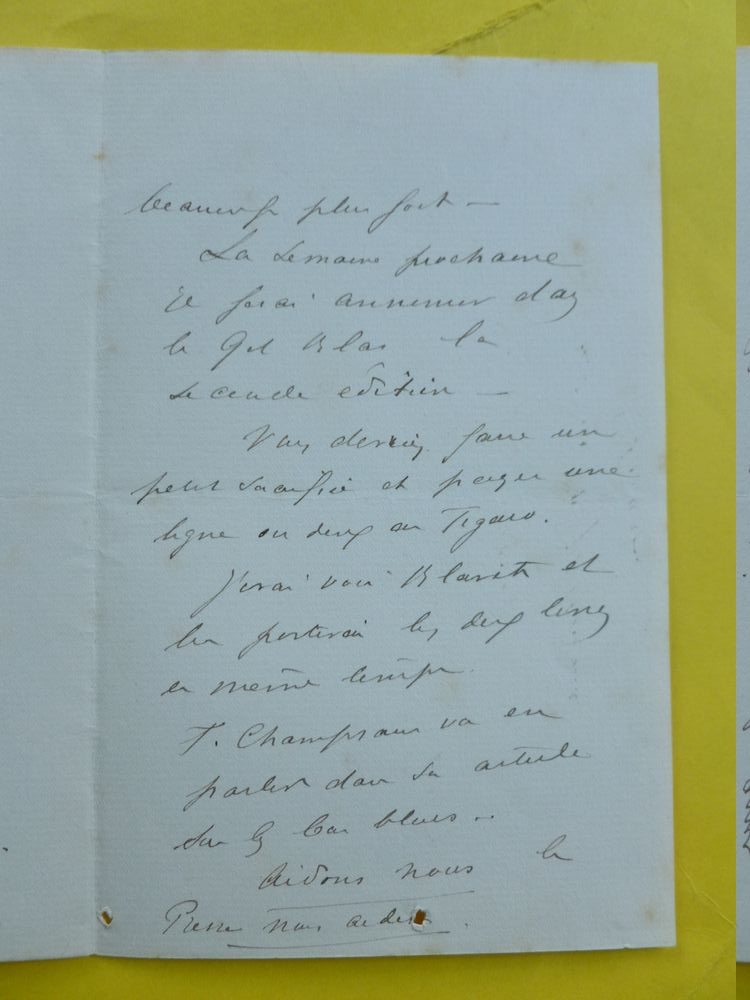 beaucoup plus fort —
La semaine prochaine
je ferai annoncer dans
le Gil Blas la
seconde édition —
Vous devriez faire un
petit sacrifice et payer une
ligne ou deux au Figaro.
J'irai voir et
lui porterai les deux livres
en même temps
F. Champsaur va en
parler dans son article
sur les bas bleus —
Aidons nous la
Presse nous aidera.